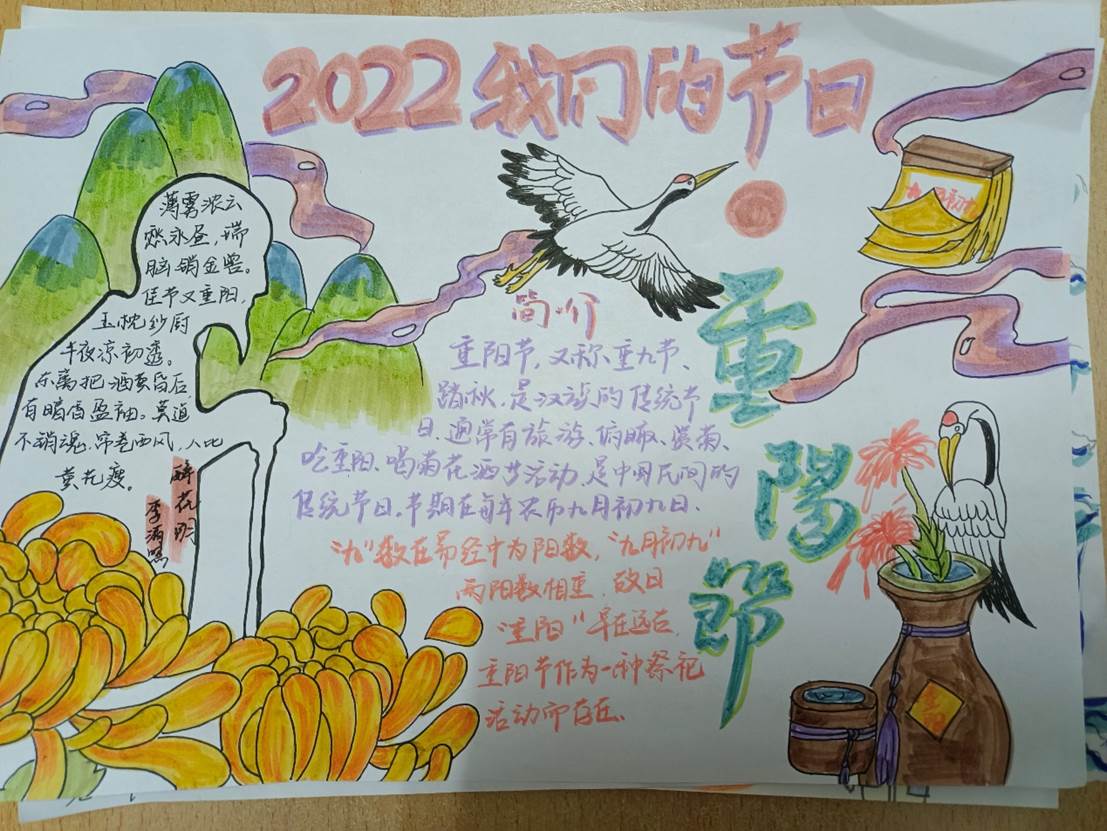 2022我们的节日
薄雾浓云
愁永昼，瑞
脑销金兽。
佳节又重阳，
玉枕纱厨
半夜凉初透。
东离把酒黄昏后
有暗香盈袖。莫道
不销魂，帘卷西风，人比
黄花瘦。
醉花阴
李清照
简介
重阳节，又称、重九节、
踏秋，是汉族的传统节
日，通常有旅游、俯瞰、赏菊、
吃重阳、喝菊花酒节活动，是中国民间的
传统节日，节期在每年农历九月初九日、
“九”数在易经中为阳数，“九月初九”
两阳数相重，故曰
“重阳”早在远古，
重阳节作为一种祭祀
活动而存在、
重陽節